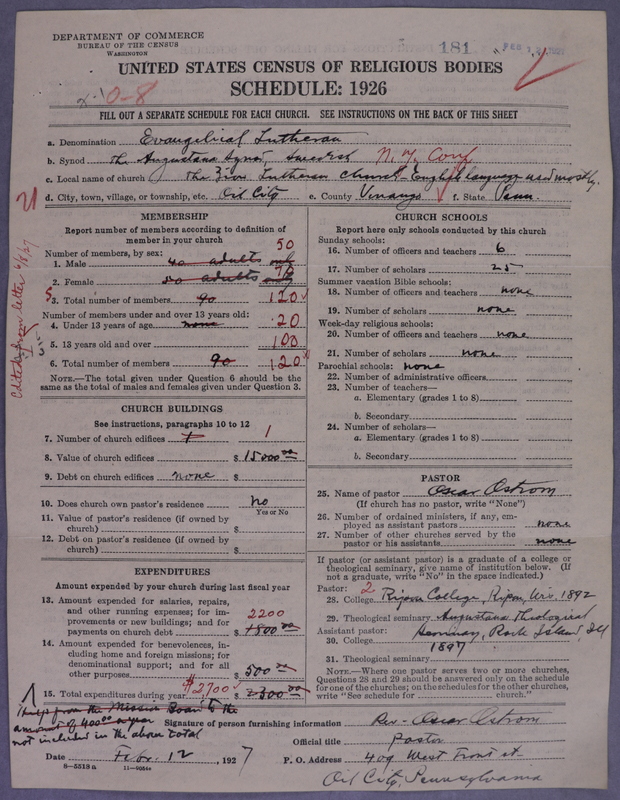 DEPARTMENT OF COMMERCE
BUREAU OF THE CENSUS
WASHINGTON
181
FEB 1927
UNITED STATES CENSUS OF RELIGIOUS BODIES
SCHEDULE: 1926
0-8
FILL OUT A SEPARATE SCHEDULE FOR EACH CHURCH. SEE INSTRUCTIONS ON THE BACK OF THIS SHEET
a. Denomination Evangelical Lutheran
b. Synod The Augustana Synod, Swedish N.Y. Conf
c. Local name of church The Zion Lutheran Church - English language used mostly.
d. City, town, village, or township, etc. Oil City e. County Venango f. State Penn.
MEMBERSHIP
Report number of members according to definition of
member in your church
Number of members, by sex: 50
1. Male 40 adults only
2. Female 50 adults only 70
3. Total number of members 90 120
Number of members under and over 13 years old:
4. Under 13 years of age none 20
5. 13 years old and over 100
6. Total number of members 90 120
NOTE.—The total given under Question 6 should be the
same as the total of males and females given under Question 3.
Edited from letter 6/8/27
CHURCH BUILDINGS
See instructions, paragraphs 10 to 12
7. Number of church edifices 1 1
8. Value of church edifices $ 15000 00
9. Debt on church edifices none $
10. Does church own pastor's residence No
Yes or No
11. Value of pastor's residence (if owned by
church) $
12. Debt on pastor's residence (if owned by
church) $
EXPENDITURES
Amount expended by your church during last fiscal year
13. Amount expended for salaries, repairs,
and other running expenses; for im-
provements or new buildings; and for 2200
payments on church debt $ 1800 00
14. Amount expended for benevolences, in-
cluding home and foreign missions; for
denominational support; and for all
other purposes $ 500 00
15. Total expenditures during year $2700 $ 2300 00
Help from the Mission Board to the
amount of 400 00 a year
not included in the above total
CHURCH SCHOOLS
Report here only schools conducted by this church
Sunday schools:
16. Number of officers and teachers 6
17. Number of scholars 25
Summer vacation Bible schools:
18. Number of officers and teachers none
19. Number of scholars none
Week-day religious schools:
20. Number of officers and teachers none
21. Number of scholars none
Parochial schools: none
22. Number of administrative officers
23. Number of teachers—
a. Elementary (grades 1 to 8)
b. Secondary
24. Number of scholars—
a. Elementary (grades 1 to 8)
b. Secondary
PASTOR
25. Name of pastor Oscar Ostrom
(If church has no pastor, write "None")
26. Number of ordained ministers, if any, em-
ployed as assistant pastors none
27. Number of other churches served by the
pastor or his assistants none
If pastor (or assistant pastor) is a graduate of a college or
theological seminary, give name of institution below. (If
not a graduate, write "No" in the space indicated.)
Pastor: 2
28. College Ripon College, Ripon, Wis. 1892
29. Theological seminary Augustana Theological
Assistant pastor: Seminary, Rock Island, Ill
30. College 1897
31. Theological seminary
NOTE.—Where one pastor serves two or more churches,
Questions 28 and 29 should be answered only on the schedule
for one of the churches; on the schedules for the other churches,
write "See schedule for church."
Signature of person furnishing information Rev. Oscar Ostrom
Official title Pastor
Date Feb. 12, 1927 P. O. Address 409 West Front st.
8—5518a 11—9054a
Oil City, Pennsylvania